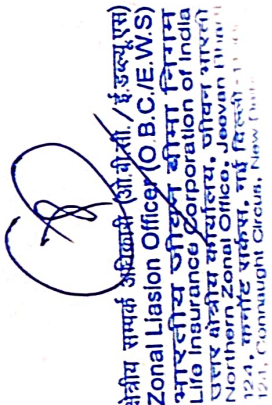 क्षेत्रीय सम्पर्क अधिकारी (ओ.बी.सी./ई.डब्ल्यू.एस)
Zonal Liasion Officer (O.B.C./E.W.S)
भारतीय जीवन बीमा निगम
Life Insurance Corporation of India
उत्तर क्षेत्रीय कार्यालय, जीवन भारती
Northern Zonal Office, Jeevan Bharti
124, कनॉट सर्कस, नई दिल्ली
124, Connaught Circus, New Delhi